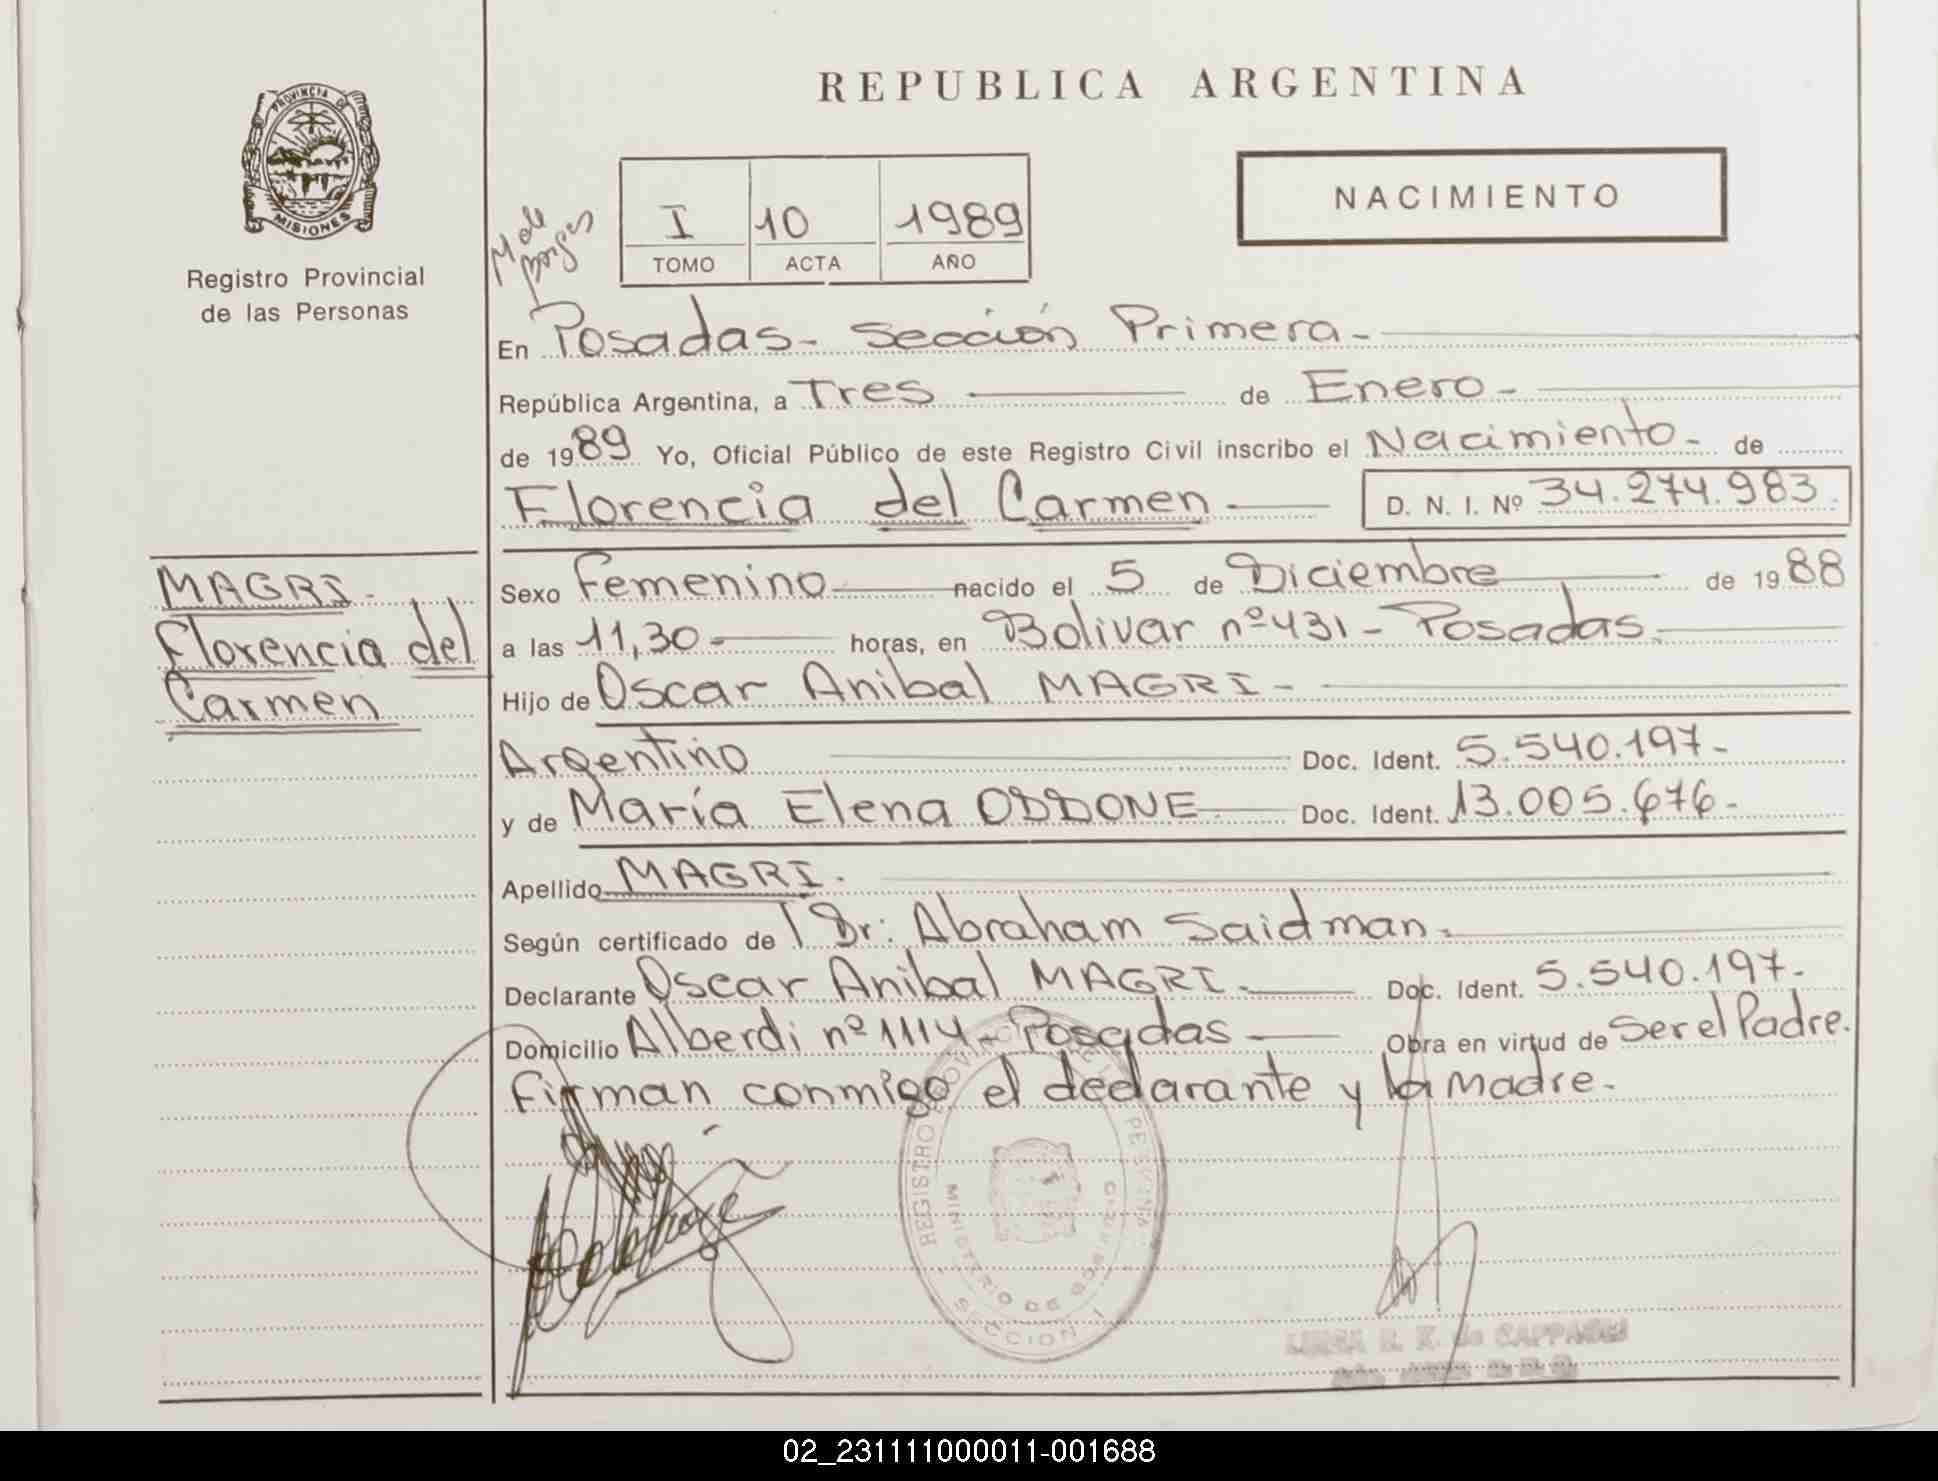 REPUBLICA ARGENTINA
PROVINCIA DE
MISIONES
Registro Provincial
de las Personas
M de
Borges
I 10 1989
TOMO ACTA AÑO
NACIMIENTO
En Posadas- Sección Primera-
República Argentina, a Tres de Enero-
de 1989 Yo, Oficial Público de este Registro Civil inscribo el Nacimiento- de
Florencia del Carmen D. N. I. Nº 34.274.983.
MAGRI.
Florencia del
Carmen
Sexo Femenino nacido el 5 de Diciembre de 1988
a las 11,30- horas, en Bolivar nº 431- Posadas.
Hijo de Oscar Anibal MAGRI-
Argentino Doc. Ident. 5.540.197-
y de María Elena ODDONE Doc. Ident. 13.005.676-
Apellido MAGRI.
Según certificado de Dr: Abraham Saidman.
Declarante Oscar Anibal MAGRI. Doc. Ident. 5.540.197-
Domicilio Alberdi nº 1114- Posadas Obra en virtud de Ser el Padre.
Firman conmigo el declarante y la Madre.
REGISTRO PROVINCIAL DE LAS PERSONAS
MINISTERIO DE GOBIERNO
SECCION 1
02_231111000011-001688